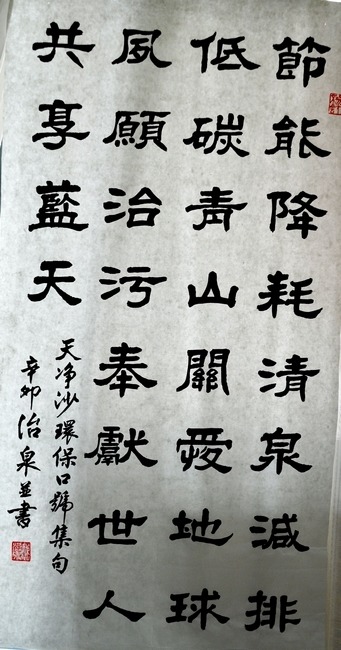 節能降耗清泉減排
低碳青山關愛地球
夙願治污奉獻世人
共享藍天
天净沙環保口號集句
辛卯治泉並書